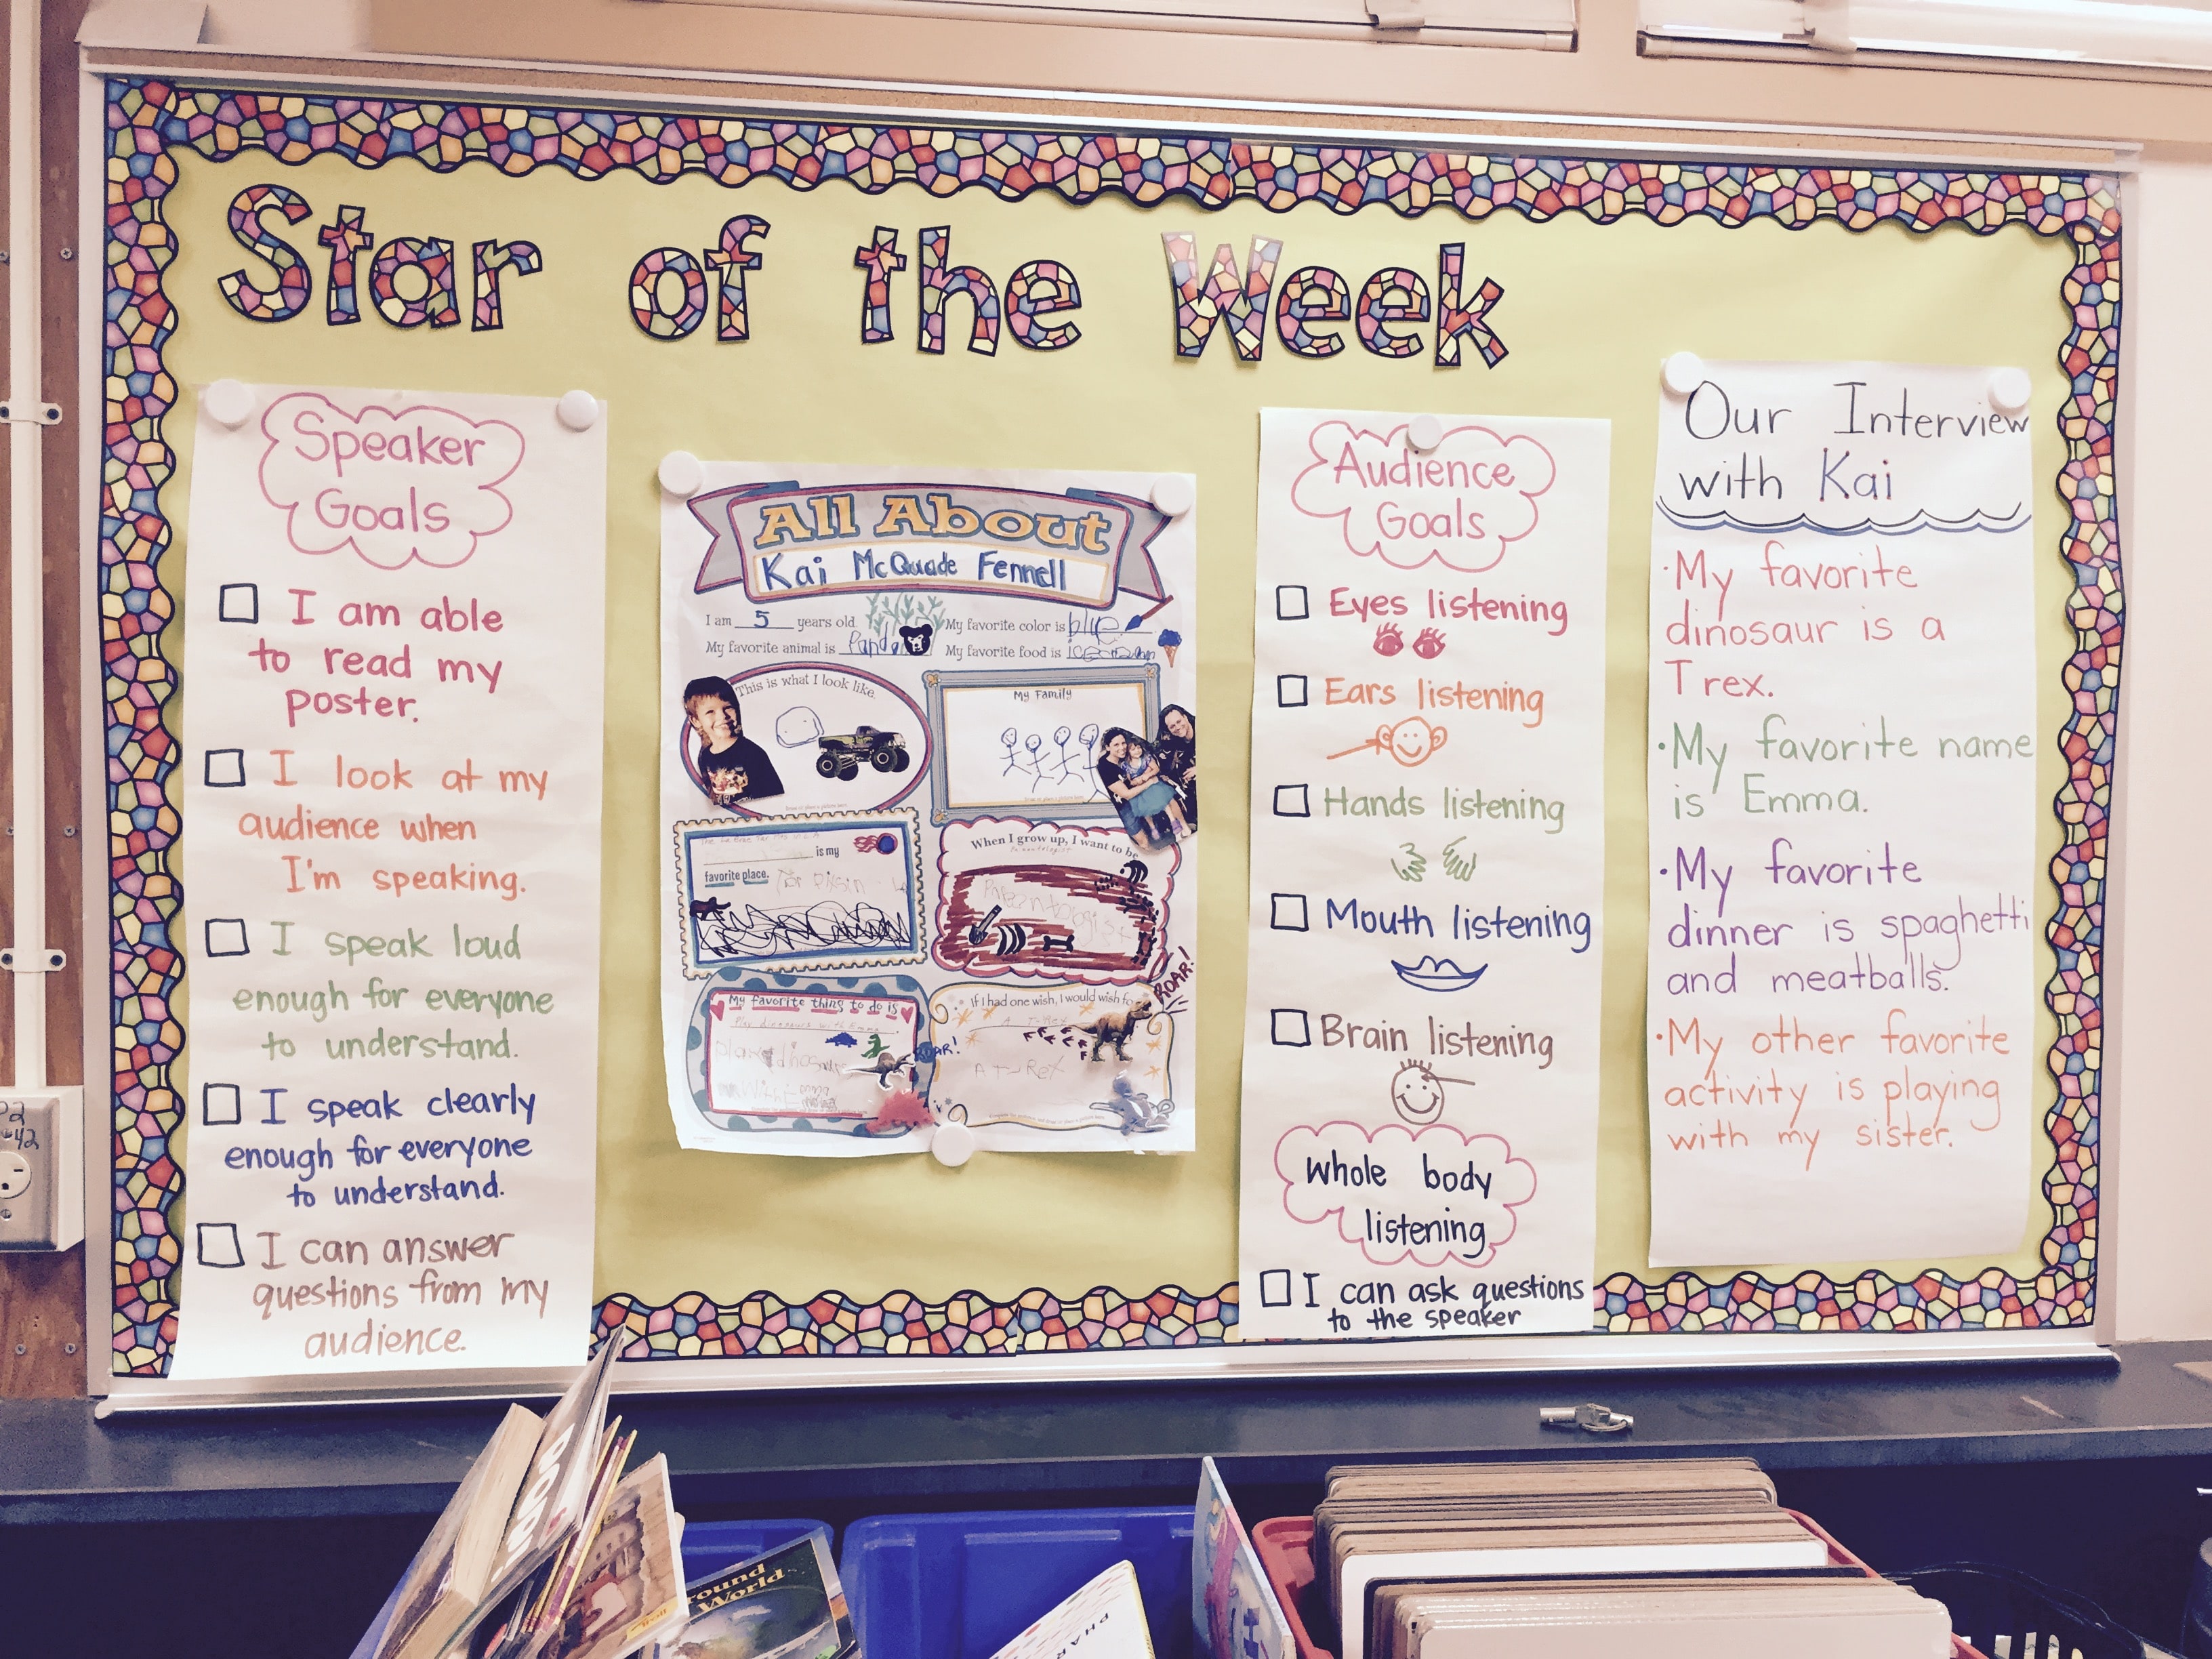 Star of the Week
Speaker
Goals
I am able
to read my
poster.
I look at my
audience when
I'm speaking.
I speak loud
enough for everyone
to understand.
I speak clearly
enough for everyone
to understand.
I can answer
questions from my
audience.
All About
Kai McQuade Fennell
I am 5 years old.
My favorite color is blue
My favorite animal is Panda
My favorite food is
This is what I look like.
My Family
is my
favorite place.
When I grow up, I want to be
My favorite thing to do is
Play dinosaurs with Emma
ROAR!
If I had one wish, I would wish for
A T-Rex
A T-Rex
ROAR!
Audience
Goals
Eyes listening
Ears listening
Hands listening
Mouth listening
Brain listening
Whole body
listening
I can ask questions
to the speaker
Our Interview
with Kai
·My favorite
dinosaur is a
T rex.
·My favorite name
is Emma.
·My favorite
dinner is spaghetti
and meatballs.
·My other favorite
activity is playing
with my sister.
World